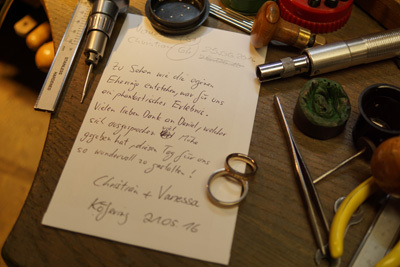 Zu Sehen wie die eigenen
Eheringe entstehen, war für uns
ein phantastisches Erlebnis.
Vielen lieben Dank an Daniel, welcher
sich ausgesprochen viel Mühe
gegeben hat, diesen Tag für uns
so wundervoll zu gestalten!
+ Vanessa
21.05.16